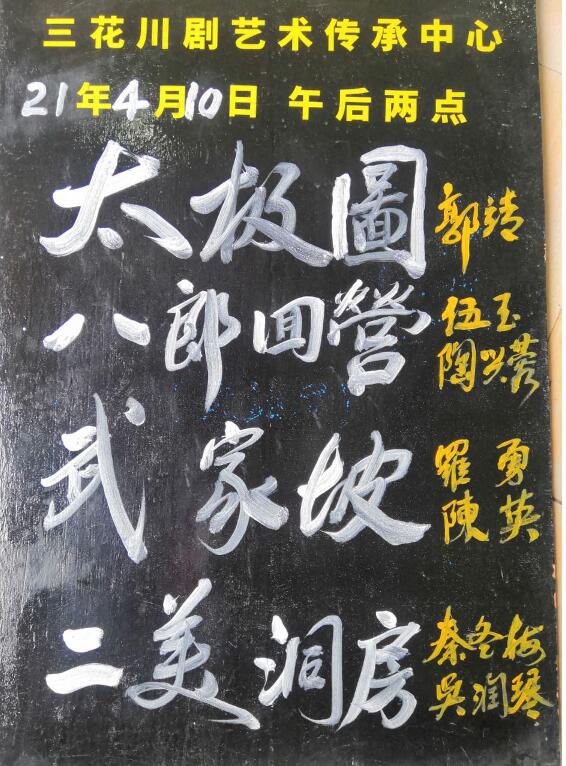 三花川剧艺术传承中心
21年4月10日 午后两点
太极圖 郭靖
八郎回營 伍玉 陶兴蓉
武家坡 羅勇 陳英
二美洞房 秦冬梅 吳润琴